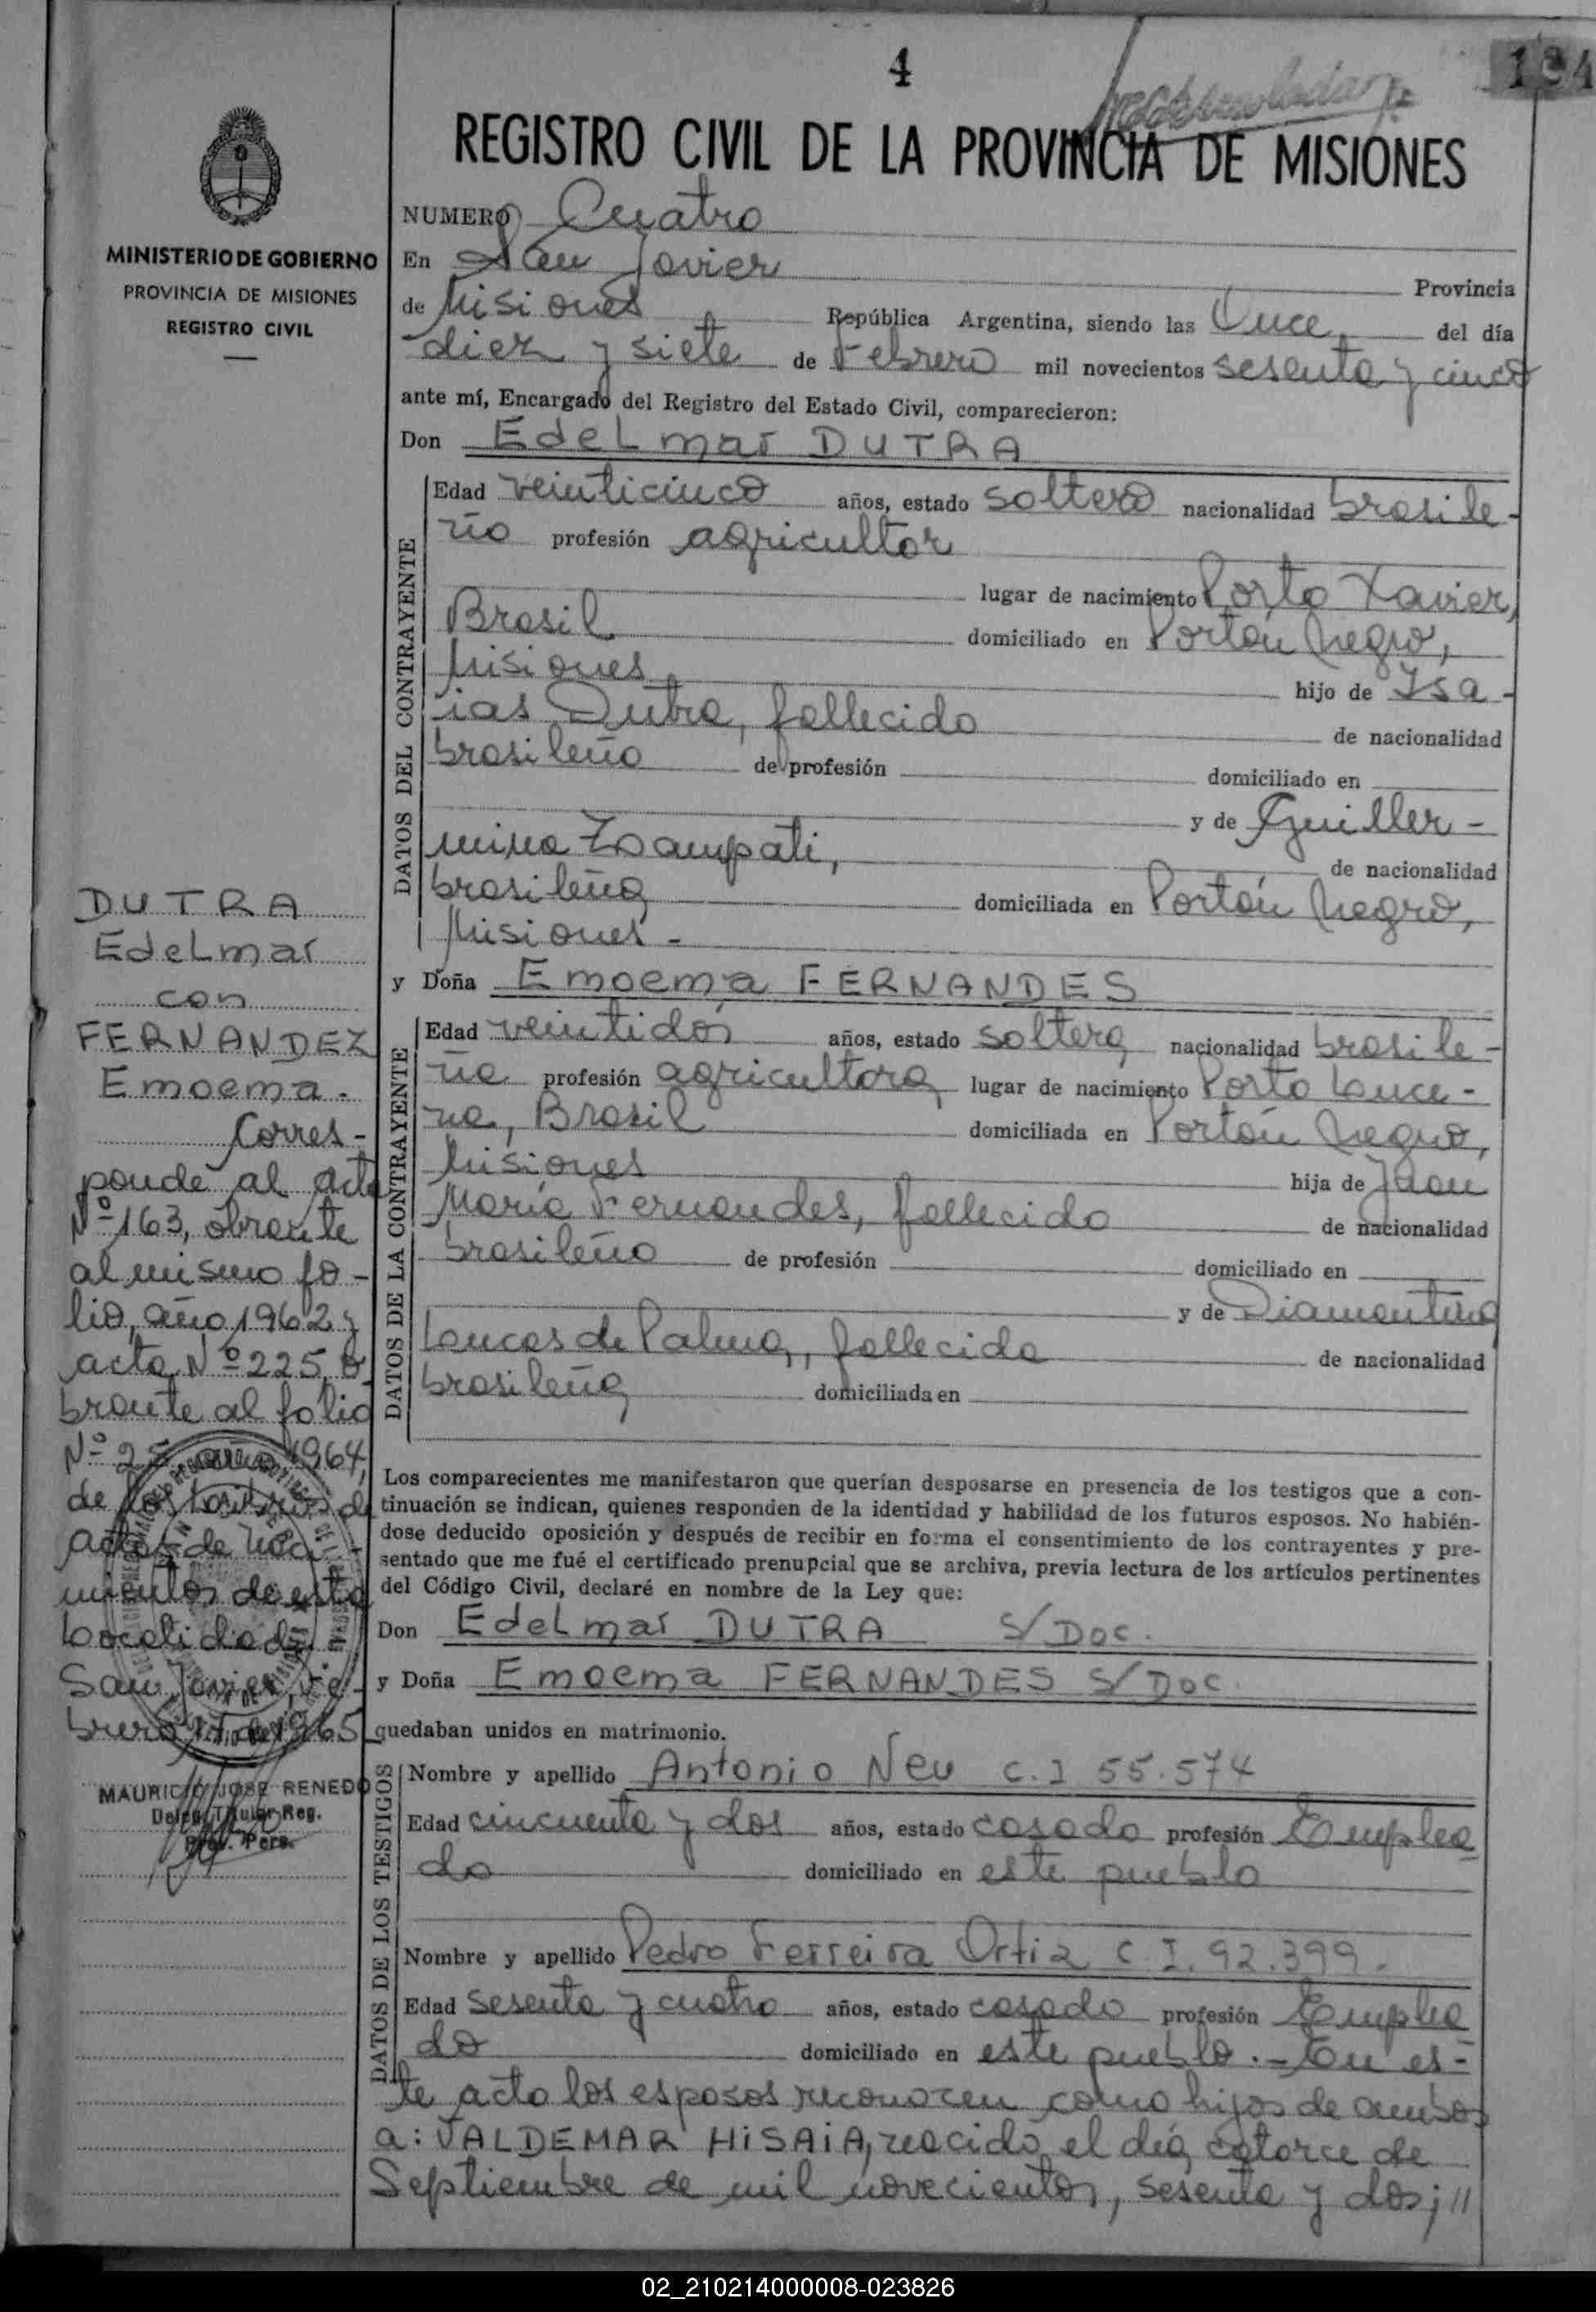 4
194
REGISTRO CIVIL DE LA PROVINCIA DE MISIONES
MINISTERIO DE GOBIERNO
PROVINCIA DE MISIONES
REGISTRO CIVIL
NUMERO Cuatro
En San Javier Provincia
de Misiones República Argentina, siendo las Once del día
diez y siete de Febrero mil novecientos sesenta y cinco
ante mí, Encargado del Registro del Estado Civil, comparecieron:
Don Edelmar DUTRA
DATOS DEL CONTRAYENTE
Edad veinticinco años, estado soltero nacionalidad brasile-
ño profesión agricultor
lugar de nacimiento Porto Xavier,
Brasil domiciliado en Portón Negro,
Misiones hijo de Isa-
ias Dutra, fallecido de nacionalidad
brasileño de profesión domiciliado en
y de Guiller-
mina Zampati, de nacionalidad
brasileña domiciliada en Portón Negro,
Misiones.-
y Doña Emoema FERNANDES
DATOS DE LA CONTRAYENTE
Edad veintidós años, estado soltera nacionalidad brasile-
ña profesión agricultora lugar de nacimiento Porto Luce-
na, Brasil domiciliada en Portón Negro,
Misiones hija de Juan
María Fernandes, fallecido de nacionalidad
brasileño de profesión domiciliado en
y de Diamantina
Lucas de Palma, fallecida de nacionalidad
brasileña domiciliada en
Los comparecientes me manifestaron que querían desposarse en presencia de los testigos que a con-
tinuación se indican, quienes responden de la identidad y habilidad de los futuros esposos. No habién-
dose deducido oposición y después de recibir en forma el consentimiento de los contrayentes y pre-
sentado que me fué el certificado prenupcial que se archiva, previa lectura de los artículos pertinentes
del Código Civil, declaré en nombre de la Ley que:
Don Edelmar DUTRA S/Doc.
y Doña Emoema FERNANDES S/Doc.
quedaban unidos en matrimonio.
DATOS DE LOS TESTIGOS
Nombre y apellido Antonio Neu C.I 55.574
Edad cincuenta y dos años, estado casado profesión Emplea
do domiciliado en este pueblo
Nombre y apellido Pedro Ferreira Ortiz C.I. 92.399.
Edad sesenta y cuatro años, estado casado profesión Emplea
do domiciliado en este pueblo.- En es-
te acto los esposos reconocen como hijos de ambos
a: VALDEMAR HISAIA, nacido el día catorce de
Septiembre de mil novecientos, sesenta y dos; //
DUTRA
Edelmar
con
FERNANDEZ
Emoema.
Corres-
ponde al acta
Nº 163, obrante
al mismo fo-
lio, año 1962 y
acta Nº 225, o
brante al folio
Nº 25 año 1964,
de los Libros de
actas de naci-
mientos de esta
Localidad
San Javier, Fe-
brero 17 de 1965
MAURICIO JOSE RENEDO
Deleg. Titular Reg.
Prov. Pers.
02_210214000008-023826